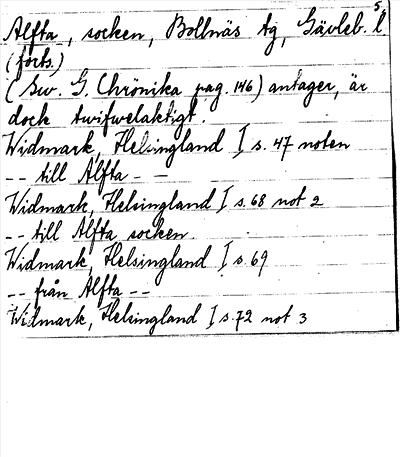 5.
Alfta, socken, Bollnäs tg, Gävleb. l
(forts.)
(Sw. G. Chrönika pag. 146) antager, är
dock twifwelaktigt.
Widmark, Helsingland I s. 47 noten
-- till Alfta --
Widmark, Helsingland I s. 68 not 2
-- till Alfta socken.
Widmark, Helsingland I s. 69
-- från Alfta --
Widmark, Helsingland I s. 72 not 3